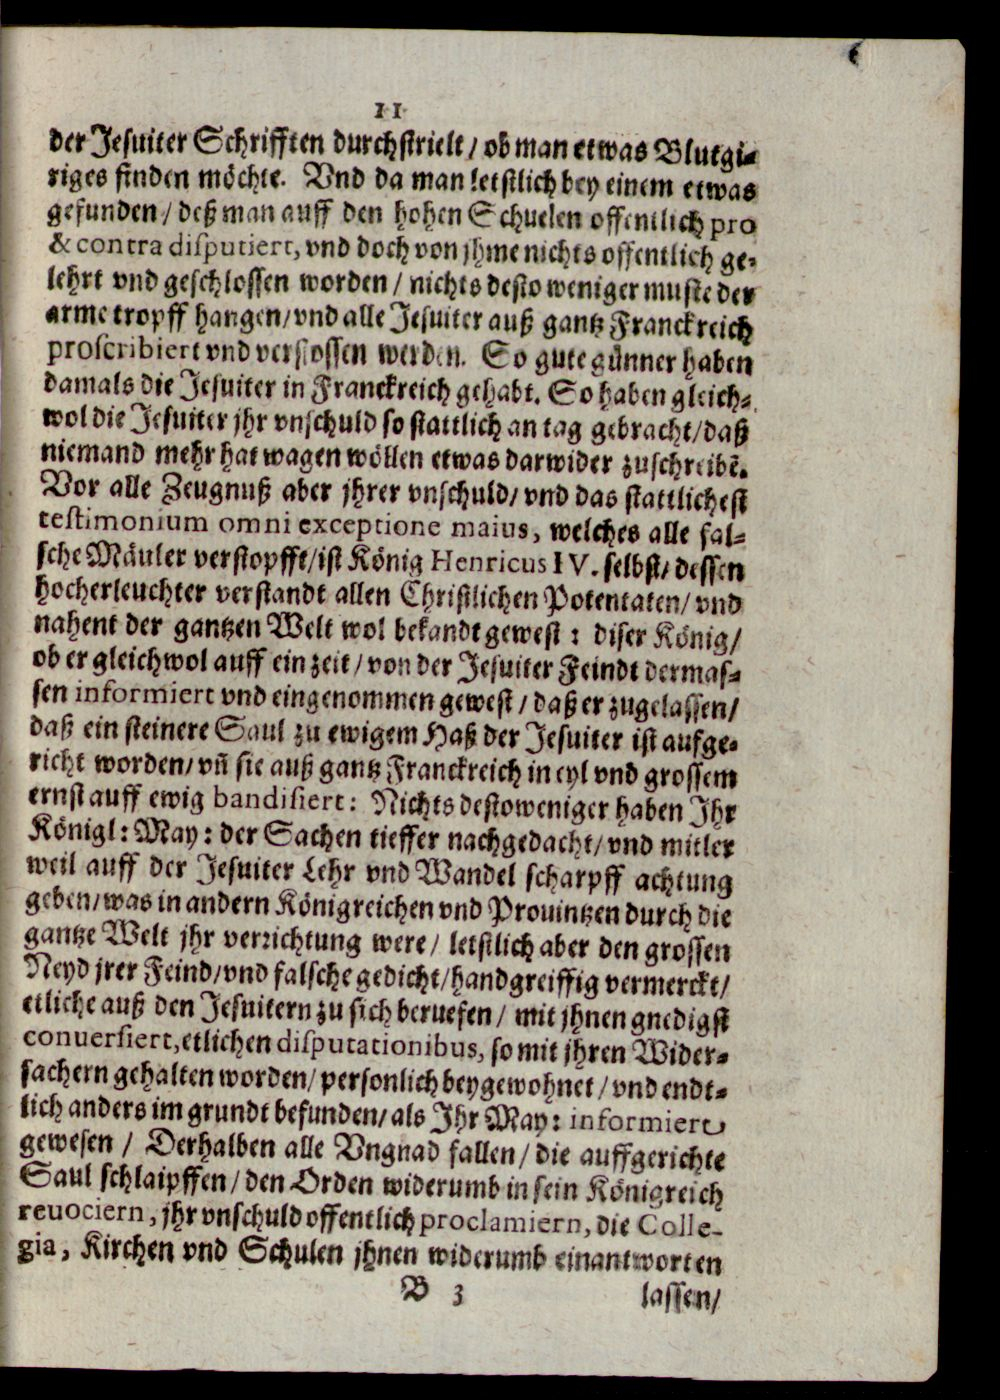 11
der Jesuiter Schrifften durchstrielt / ob man etwas Blutgi-
riges finden möchte. Vnd da man letstlich bey einem etwas
gefunden / deß man auff den hohen Schuelen offentlich pro
& contra disputiert, vnd doch von jhme nichts offentlich ge-
lehrt vnd geschlossen worden / nichts desto weniger muste der
arme tropff hangen / vnd alle Jesuiter auß gantz Franckreich
proscribiert vnd verstossen werden. So gute günner haben
damals die Jesuiter in Franckreich gehabt. So haben gleich-
wol die Jesuiter jhr vnschuld so stattlich an tag gebracht / daß
niemand mehr hat wagen wöllen etwas darwider zuschreibē.
Vor alle Zeugnuß aber jhrer vnschuld / vnd das stattlichest
testimonium omni exceptione maius, welches alle fal-
sche Mäuler verstopfft / ist König Henricus IV. selbst / dessen
hocherleuchter verstandt allen Christlichen Potentaten / vnd
nahent der gantzen Welt wol bekandt gewest : diser König /
ob er gleichwol auff ein zeit / von der Jesuiter Feindt dermas-
sen informiert vnd eingenommen gewest / daß er zugelassen /
daß ein steinere Saul zu ewigem Haß der Jesuiter ist aufge-
richt worden / vñ sie auß gantz Franckreich in eyl vnd grossem
ernst auff ewig bandisiert : Nichts destoweniger haben Ihr
Königl : May : der Sachen tieffer nachgedacht / vnd mitler
weil auff der Jesuiter Lehr vnd Wandel scharpff achtung
geben / was in andern Königreichen vnd Prouintzen durch die
gantze Welt jhr verrichtung were / letstlich aber den grossen
Neyd jrer Feind / vnd falsche gedicht / handgreiffig vermerckt /
etliche auß den Jesuitern zu sich beruefen / mit jhnen gnedigst
conuersiert, etlichen disputationibus, so mit jhren Wider-
sachern gehalten worden / personlich beygewohnet / vnd endt-
lich anders im grundt befunden / als Ihr May : informiert
gewesen / Derhalben alle Vngnad fallen / die auffgerichte
Saul schlaipffen / den Orden widerumb in sein Königreich
reuociern, jhr vnschuld offentlich proclamiern, die Colle-
gia, Kirchen vnd Schulen jhnen widerumb einantworten
B 3 lassen /